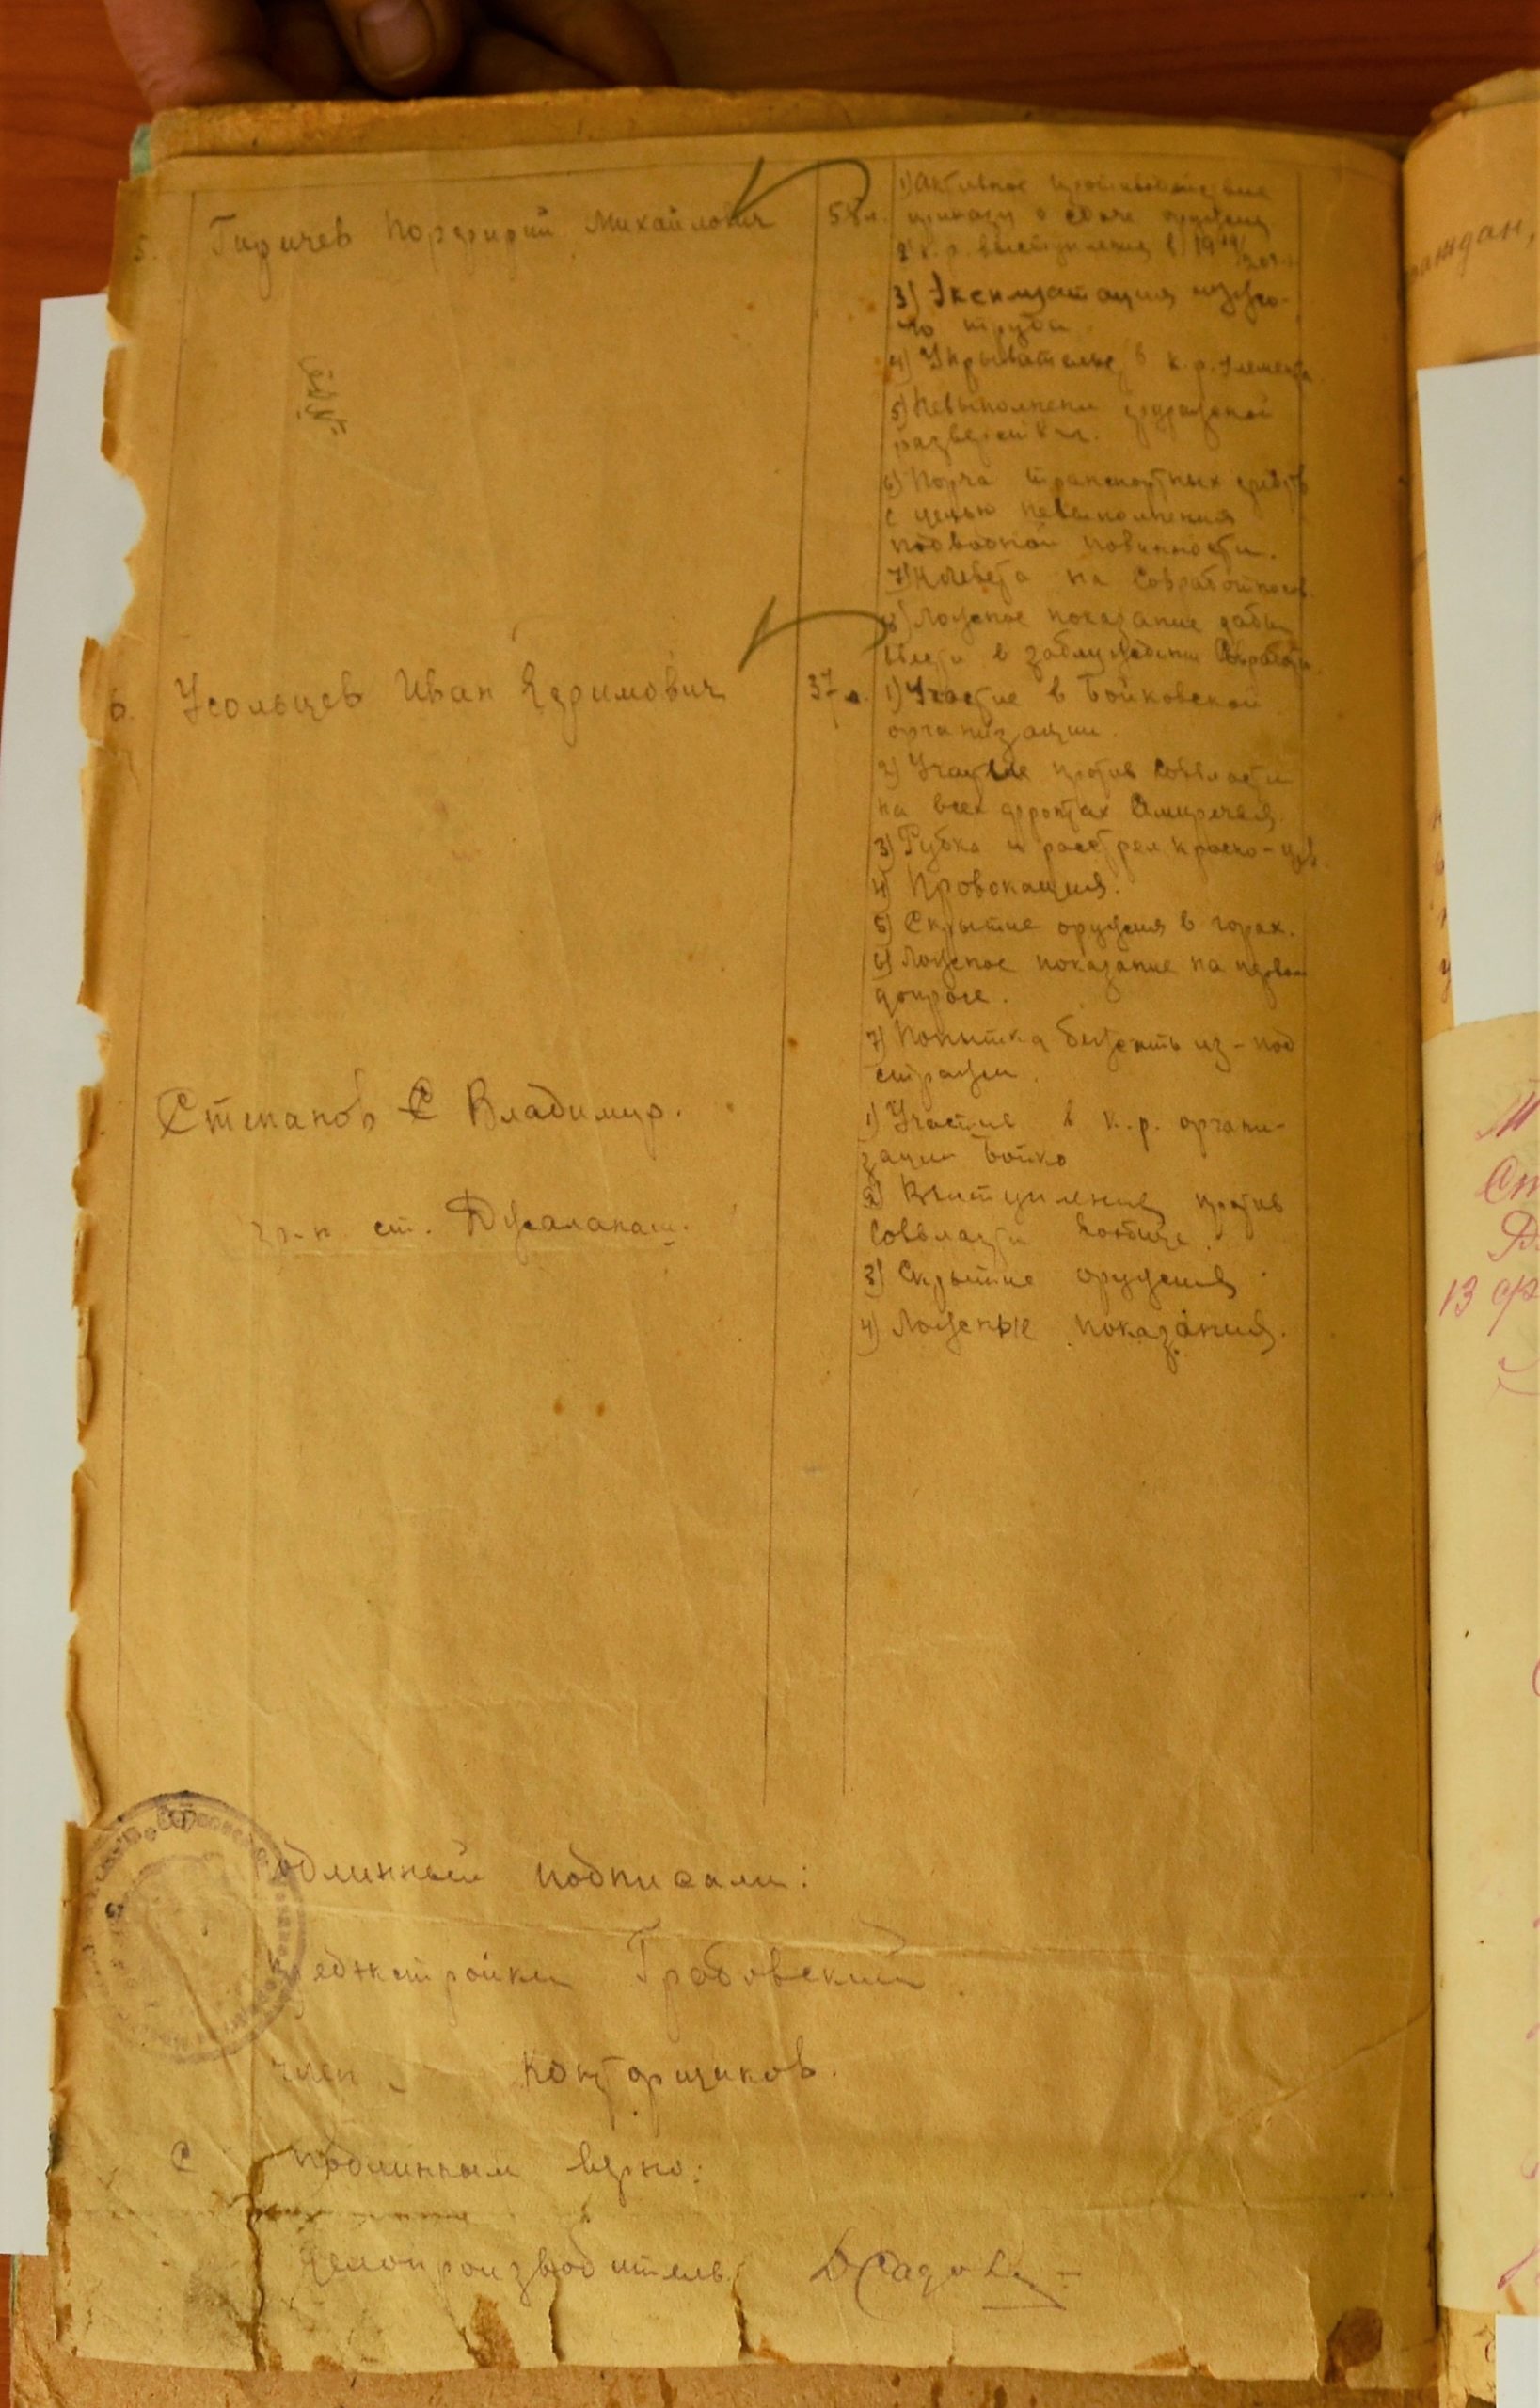 5. Гиричев Порфирий Михайлович 58 л.
1) Активное противодействие
приказу о сдаче оружия
2) к.р. выступления в 1919/20 г.
3) Эксплоатация чужо-
го труда
4) Укрыватель к.р. элемента
5) Невыполнени гужевой
разверстки.
6) Порча транспортных средств
с целью невыполнения
подводной повинности.
7) Клевета на Совработников
8) Ложное показание дабы
ввести в заблуждение
6. Усольцев Иван Ефимович 37 л.
1) Участие в Бойковской
организации.
2) Участие против Соввласти
на всех фронтах Семиречья
3) Рубка и расстрел красно-цев
4) Провокация.
5) Скрытие оружия в горах.
6) Ложное показание на первом
допросе.
7) Попытка бежать из-под
стражи.
Степанов С Владимир.
гр-н ст. Джаланаш.
1) Участие в к.р. органи-
зации Бойко
2) Выступление против
Соввласти вообще.
3) Скрытие оружия
4) Ложные показания.
одлинный подписали:
еджстройки Грабовский
член " Конторщиков.
С подлинным верно:
Делопроизводитель
раждан,
М
Ст
13 ф